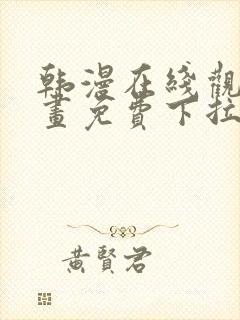 韩漫在綫觀
畫免費下拉
黄賢君